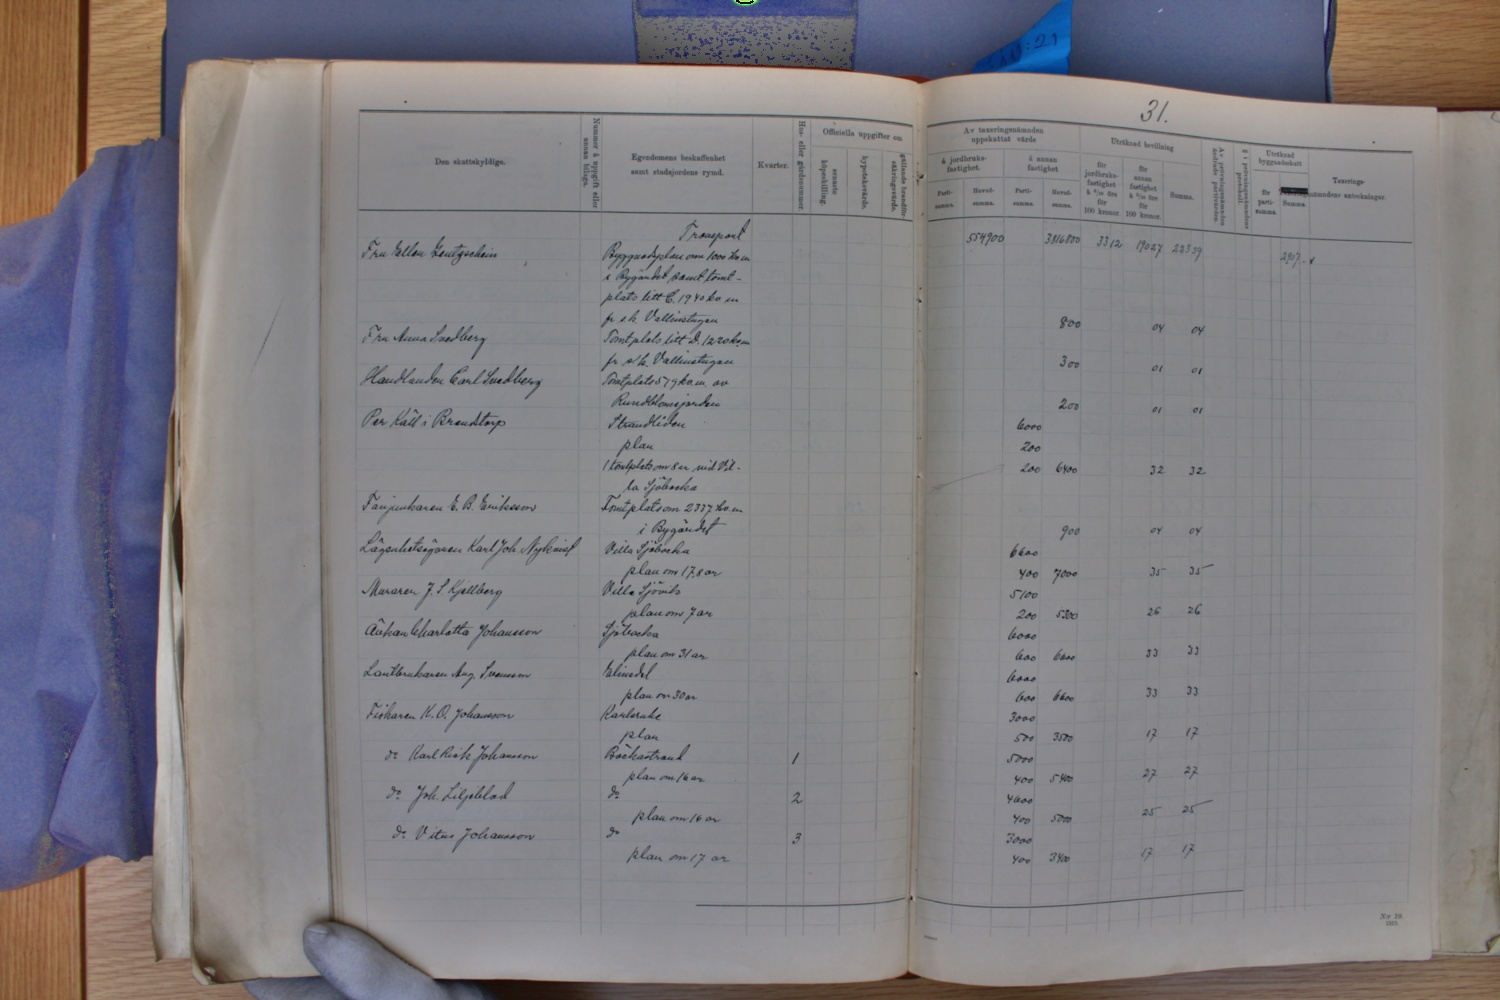 31.
Den skattskyldige.
Nummer å uppgift eller annan bilaga.
Egendomens beskaffenhet samt stadsjordens rymd.
Kvarter.
Hus- eller gårdsnummer.
Officiella uppgifter om
senaste köpeskilling.
hypoteksvärde.
gällande brandförsäkringsvärde.
Av taxeringsnämnden uppskattat värde
å jordbruksfastighet.
å annan fastighet.
Partisumma.
Huvudsumma.
Partisumma.
Huvudsumma.
Uträknad bevillning
för jordbruksfastighet å 6/10 öre för 100 kronor.
för annan fastighet å 5/10 öre för 100 kronor.
Summa.
Av prövningsnämnden ändrade partivärden.
§ i prövningsnämndens protokoll.
Uträknad byggnadsskatt
för partisumma.
Summa.
Taxeringsnämndens anteckningar.
Transport 554900 3816800 3312 19027 22339
Fru Ellen Byggnadsplan om 1000 kv.m 2907
i Bygärdet samt tomt-
plats litt C. 1940 kv.m
fr. s.k. Vallinstugan 800 04 04
Fru Anna Svedberg Tomtplats litt D. 1220 kv.m
fr. s.k. Vallinstugan 300 01 01
Handlanden Carl Svedberg Tomtplats 579 kv.m. av
Rundblomsjorden 200 01 01
Per Käll i Brandstorp Strandliden 6000
plan 200
1 tomtplats om 8 ar vid Vil- 200 6400 32 32
la Sjöbacka
Fanjunkaren E. B. Eriksson Tomtplats om 2337 kv.m
i Bygärdet 900 04 04
Lägenhetsägaren Karl Joh. Nykvist Villa Sjöbacka 6600
plan om 17,8 ar 400 7000 35 35
Muraren J. S. Kjellberg Villa Sjövik 5100
plan om 7 ar 200 5300 26 26
Änkan Charlotta Johansson Sjöbacka 6000
plan om 31 ar 600 6600 33 33
Lantbrukaren Aug. Svensson 6000
plan om 30 ar 600 6600 33 33
Fiskaren K. O. Johansson Karlsruhe 3000
plan 500 3500 17 17
do Karl Johansson Bäckastrand 1 5000
plan om 16 ar 400 5400 27 27
do Joh. Liljeblad do 2 4600
plan om 16 ar 400 5000 25 25
do Vitus Johansson do 3 3000
plan om 17 ar 400 3400 17 17